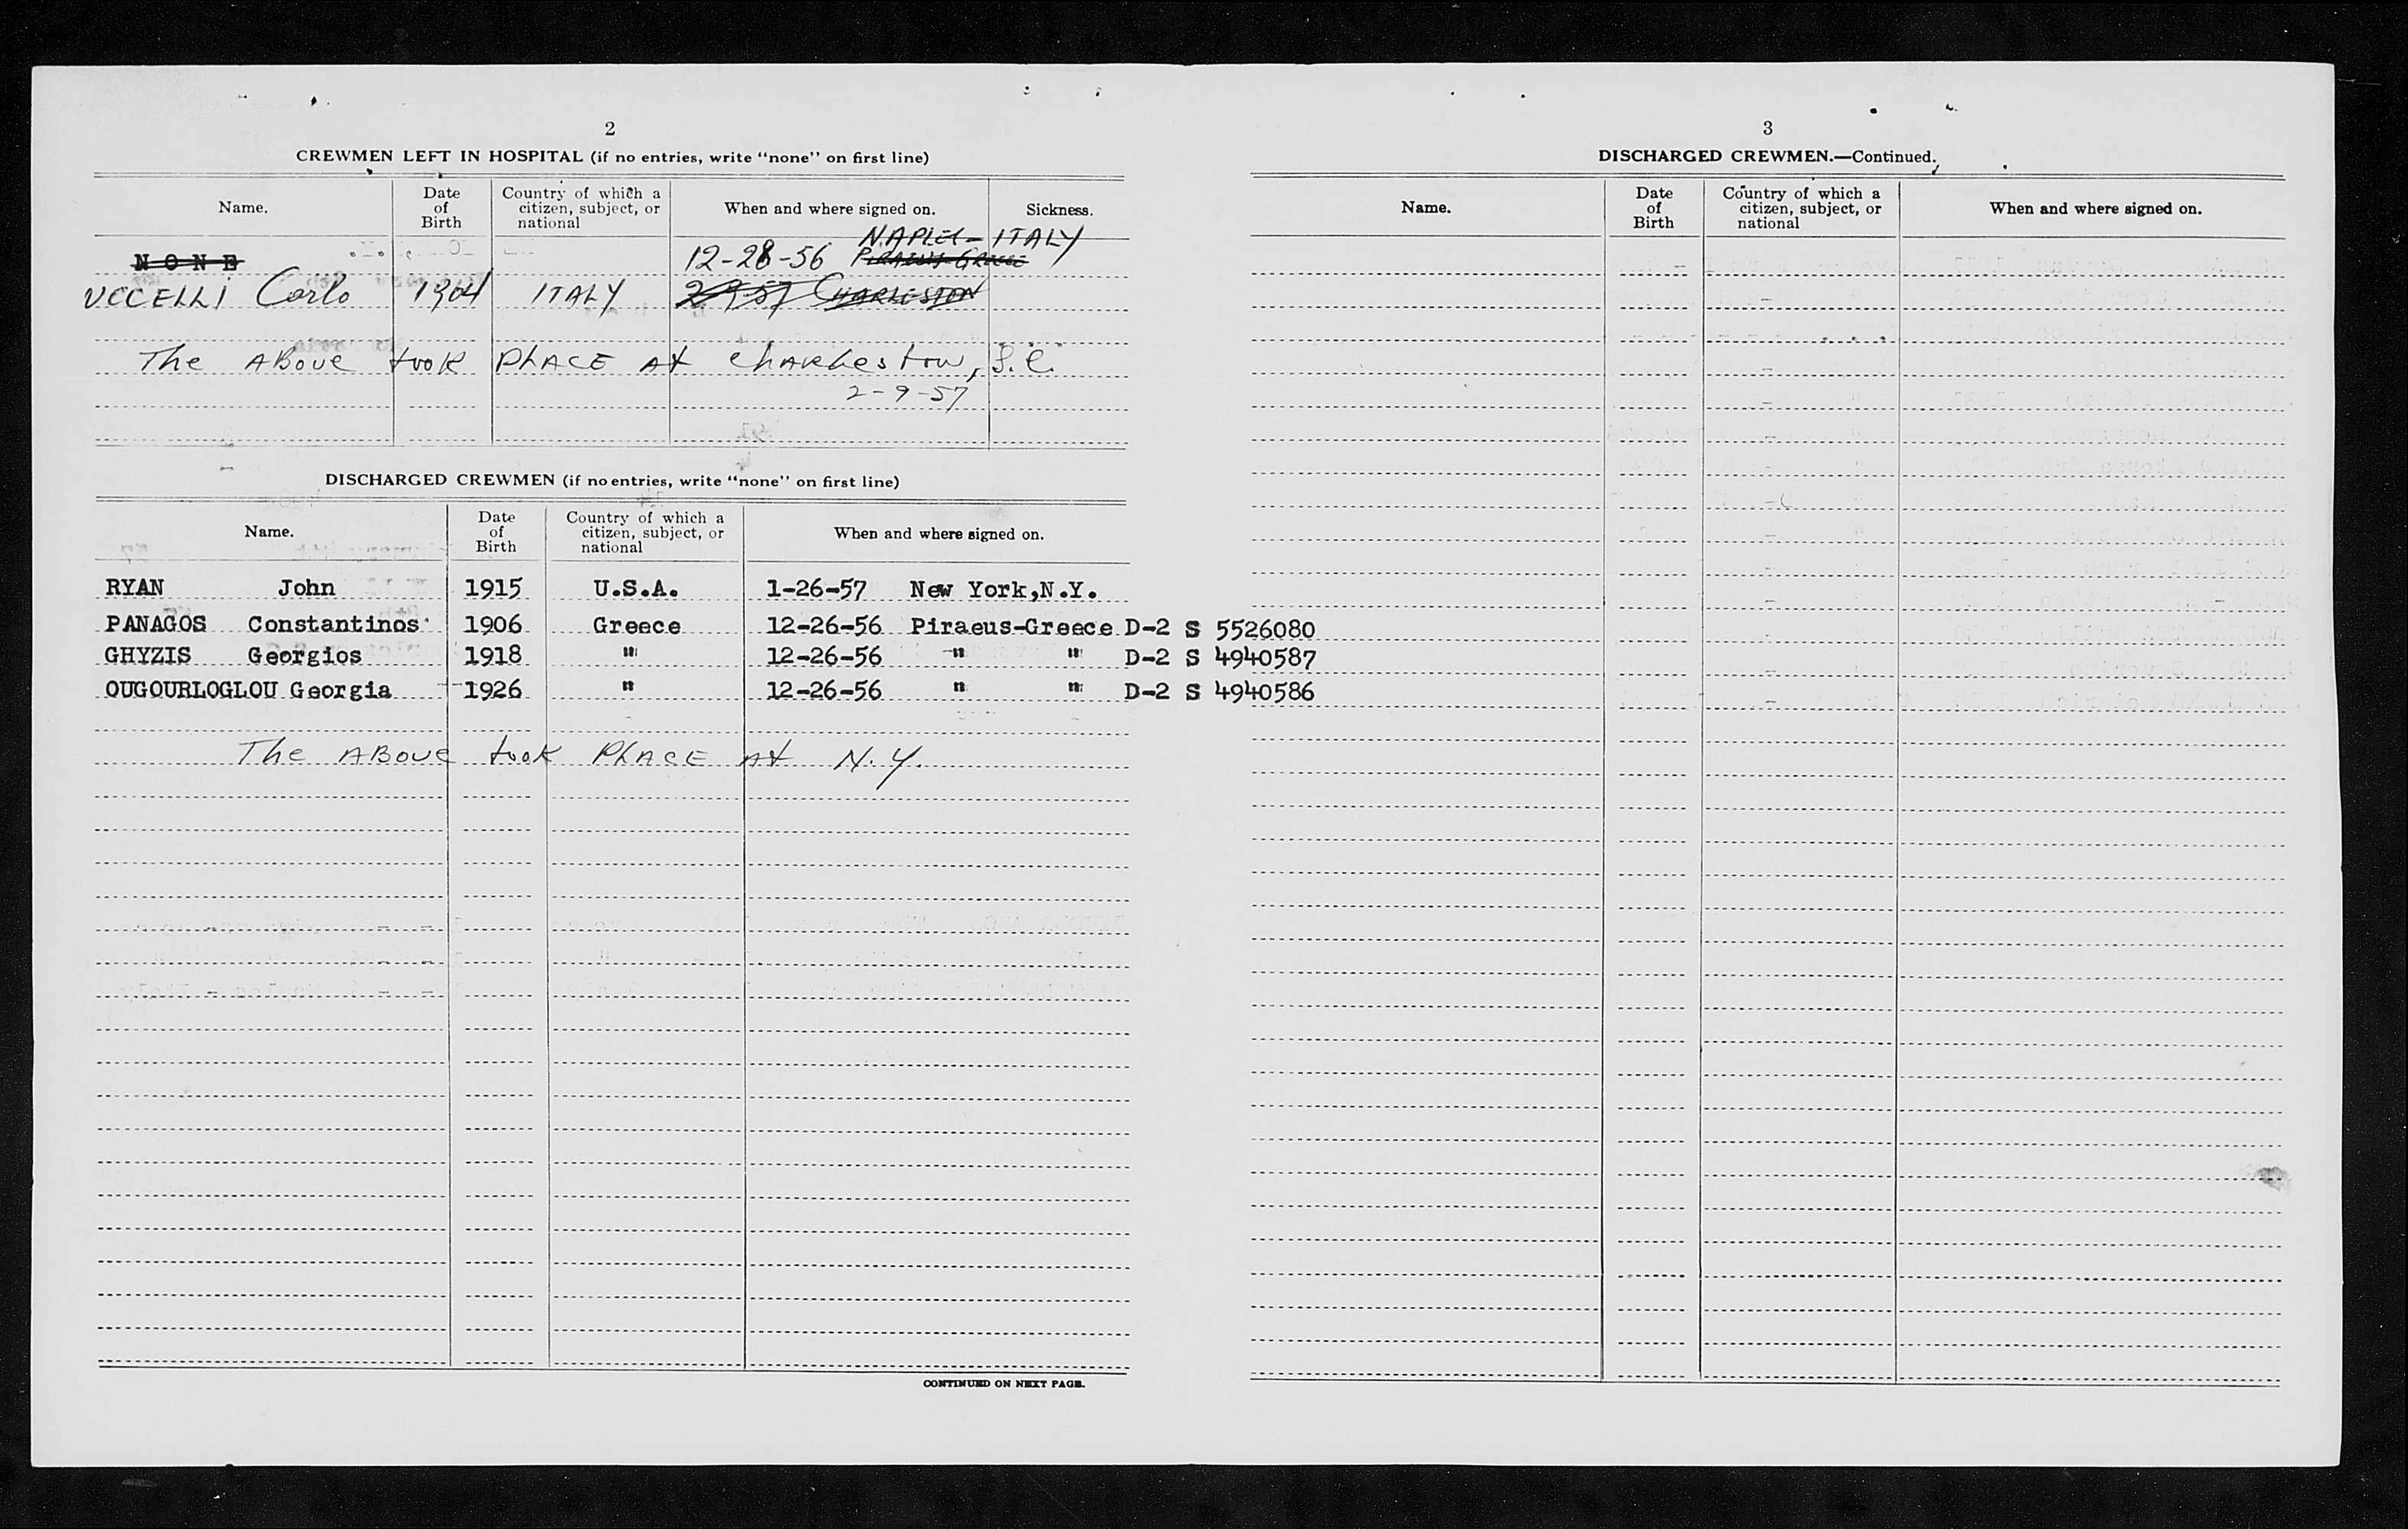 2
CREWMEN LEFT IN HOSPITAL (if no entries, write "none" on first line)
Name. Date of Birth Country of which a citizen, subject, or national When and where signed on. Sickness.
NAPLES - ITALY
NONE 12-28-56 PIRAEUS-GREECE
UCCELLI Carlo 1904 ITALY 2-9-57 CHARLESTON
The ABove took PLACE At chARLeston, S.C.
2-9-57
DISCHARGED CREWMEN (if no entries, write "none" on first line)
Name. Date of Birth Country of which a citizen, subject, or national When and where signed on.
RYAN John 1915 U.S.A. 1-26-57 New York,N.Y.
PANAGOS Constantinos 1906 Greece 12-26-56 Piraeus-Greece D-2 S 5526080
GHYZIS Georgios 1918 " 12-26-56 " " D-2 S 4940587
OUGOURLOGLOU Georgia 1926 " 12-26-56 " " D-2 S 4940586
The ABove took PLACE At N.Y.
CONTINUED ON NEXT PAGE.
3
DISCHARGED CREWMEN.—Continued.
Name. Date of Birth Country of which a citizen, subject, or national When and where signed on.